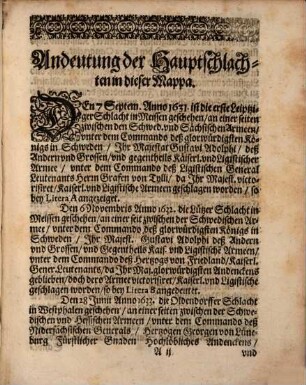 Andeutung der Hauptschlach-
ten in dieser Mappa.
DEn 7 Septem. Anno 1631. ist die erste Leipzi-
ger Schlacht in Meissen geschehen/ an einer seiten
zwischen den Schwed. und Sächsischen Armeen/
unter dem Commando deß glorwürdigsten Kö-
nigs in Schweden / Ihr Majestät Gustavi Adolphi / deß
Andern und Grossen/ und gegentheils Käiserl. und Ligistischer
Armee / unter dem Commando deß Ligistischen General
Leutenants Herrn Grafen von Tylli/ da Ihr Majest. victo-
risiret/ Käiserl. und Ligstische Armeen geschlagen worden / so
bey Litera A angezeiget.
Den 6 Novembris Anno 1632. die Lützer Schlacht in
Meissen geschehen/ an einer seit zwischen der Schwedischen Ar-
mee/ unter dem Commando deß glorwürdigsten Königs in
Schweden / Ihr Majest. Gustavi Adolphi deß Andern
und Grossen/ und Gegentheils Käis. und Ligistische Armeen/
unter dem Commando deß Hertzogs von Friedland/ Käiserl.
Gener. Leutenants/ da Ihr Maj. glorwürdigsten Andenckens
geblieben/ doch dero Armee victorisiret/ Käiserl. und Ligistische
geschlagen worden/ so bey Litera B angedeutet.
Den 28 Junii Anno 1633. die Oldendorffer Schlacht
in Westphalen geschehen / an einer seiten zwischen der Schwe-
dischen und Hessischen Armeen / unter dem Commando deß
Nidersächsischen Generals / Hertzogen Georgen von Lüne-
burg Fürstlicher Gnaden Hochlöbliches Andenckens /
A ij und